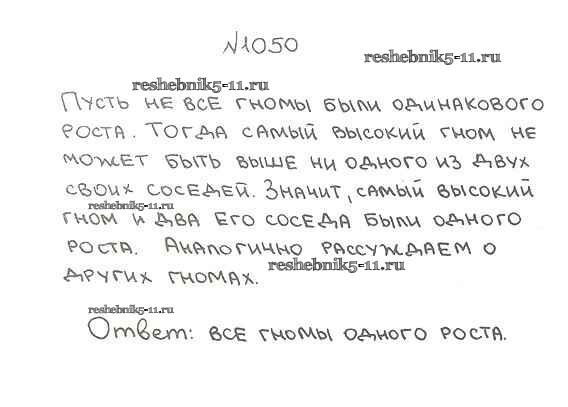 №1050
reshebnik5-11.ru
reshebnik5-11.ru
Пусть не все гномы были одинакового
роста. Тогда самый высокий гном не
может быть выше ни одного из двух
своих соседей. Значит, самый высокий
reshebnik5-11.ru
гном и два его соседа были одного
роста. Аналогично рассуждаем о
reshebnik5-11.ru
других гномах.
reshebnik5-11.ru
Ответ: все гномы одного роста.